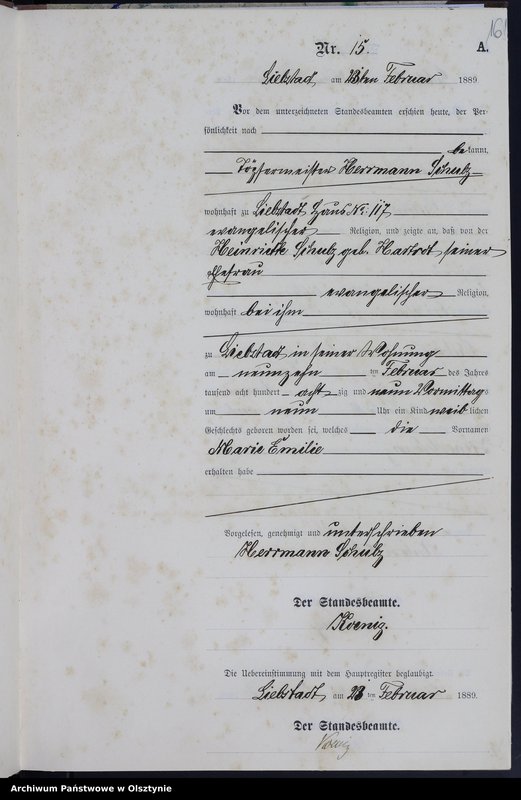 161
Nr. 15. A.
Liebstadt am 23ten Februar 1889
Vor dem unterzeichneten Standesbeamten erschien heute, der Per-
sönlichkeit nach
bekannt,
Töpfermeister Herrmann Schulz
wohnhaft zu Liebstadt Haus No. 117
evangelischer Religion, und zeigte an, daß von der
Heinriette Schulz geb. seiner
Ehefrau
evangelischer Religion,
wohnhaft bei ihm
zu Liebstadt in seiner Wohnung
am neunzehn ten Februar des Jahres
tausend acht hundert acht zig und neun Vormittags
um neun Uhr ein Kind weiblichen
Geschlechts geboren worden sei, welches die Vornamen
Marie Emilie
erhalten habe
Vorgelesen, genehmigt und unterschrieben
Herrmann Schulz
Der Standesbeamte.
Koenig.
Die Uebereinstimmung mit dem Hauptregister beglaubigt.
Liebstadt am 23 ten Februar 1889.
Der Standesbeamte.
Koenig
Archiwum Państwowe w Olsztynie